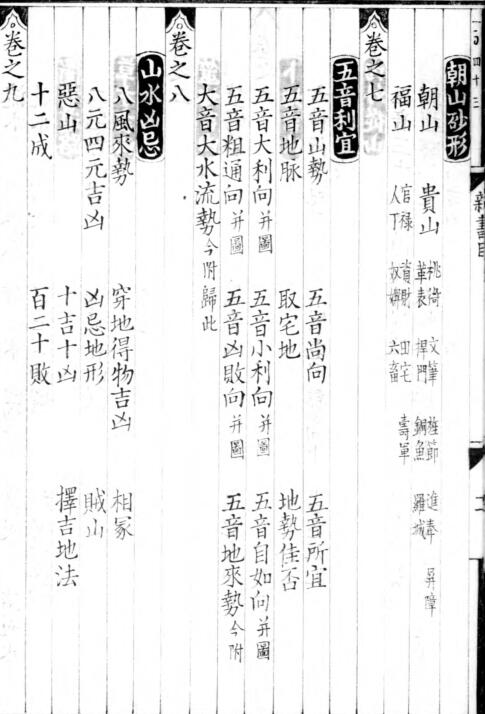 朝山砂形
朝山 貴山 桃倚 華表 文筆 捍門 旌節 銅魚 進奉 羅城 屏障
福山 官祿 人丁 貲財 奴婢 田宅 六畜 壽筭
卷之七
五音利宜
五音山勢 五音尚向 五音所宜
五音地脉 取宅地 地勢佳否
五音大利向并圖 五音小利向并圖 五音自如向并圖
五音粗通向并圖 五音凶敗向并圖 五音地來勢今附
大音大水流勢今附歸此
卷之八
山水凶忌
八風來勢 穿地得物吉凶 相冢
八元四元吉凶 凶忌地形 賊山
惡山 十吉十凶 擇吉地法
十二成 百二十敗
卷之九